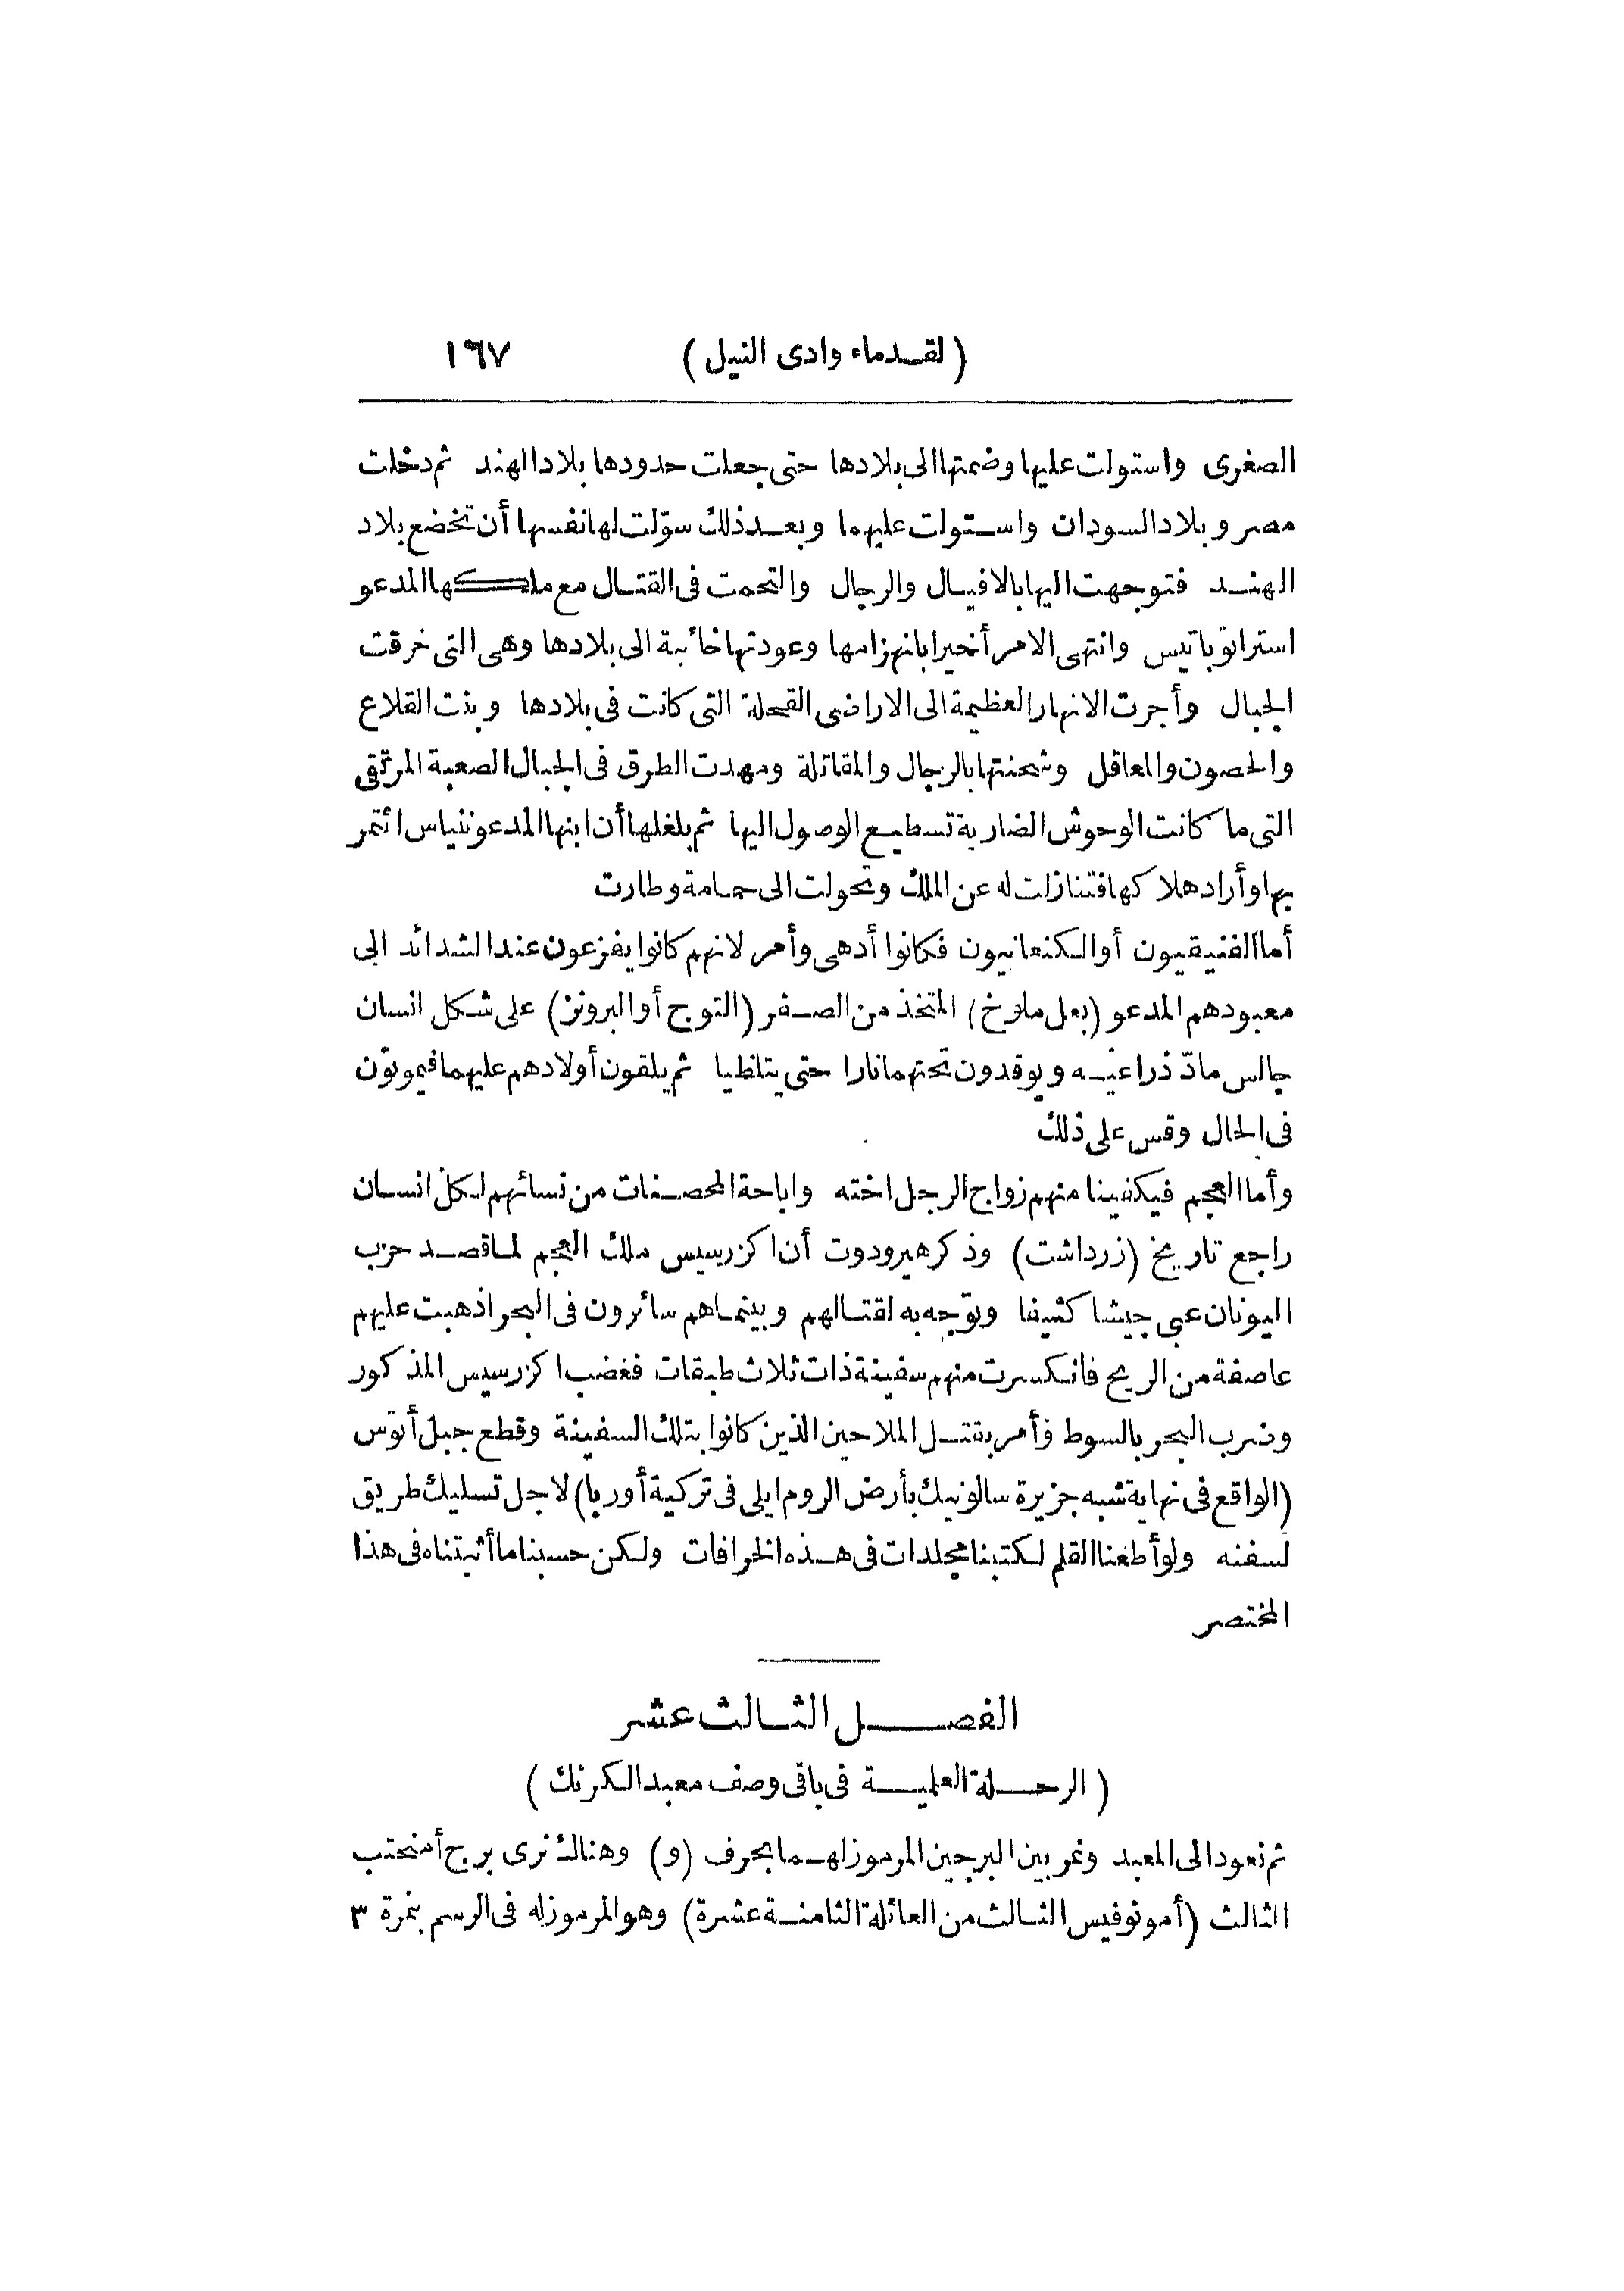 (لقدماء وادى النيل) ١٦٧
الصغرى واستولت عليها وضمتها الى بلادها حتى جعلت حدودها بلاد الهند ثم دخلت
مصر وبلاد السودان واستولت عليهما وبعد ذلك سوّلت لها نفسها أن تخضع بلاد
الهند فتوجهت اليها بالافيال والرجال والتحمت فى القتال مع ملكها المدعو
استراتوباتيس وانتهى الامر أخيرا بانهزامها وعودتها خائبة الى بلادها وهى التى خرقت
الجبال وأجرت الانهار العظيمة الى الاراضى القحلة التى كانت فى بلادها وبنت القلاع
والحصون والمعاقل وشحنتها بالرجال والمقاتلة ومهدت الطرق فى الجبال الصعبة المرتقى
التى ما كانت الوحوش الضارية تسطيع الوصول اليها ثم بلغلها أن ابنها المدعو ننياس ائتمر
بها وأراد هلاكها فتنازلت له عن الملك وتحولت الى حمامة وطارت
أما الفنيقيون أو الكنعانيون فكانوا أدهى وأمر لانهم كانوا يفزعون عند الشدائد الى
معبودهم المدعو (بعل ملوخ) المتخذ من الصفر (التوج أو البرونز) على شكل انسان
جالس مادّ ذراعيه ويوقدون تحتهما نارا حتى يتلظيا ثم يلقون أولادهم عليهما فيموتون
فى الحال وقس على ذلك
وأما العجم فيكفينا منهم زواج الرجل اخته واباحة المحصنات من نسائهم لكل انسان
راجع تاريخ (زرداشت) وذكر هيرودوت أن اكزرسيس ملك العجم لما قصد حرب
اليونان عبى جيشا كثيفا وتوجه به لقتالهم وبينما هم سائرون فى البحر اذ هبت عليهم
عاصفة من الريح فانكسرت منهم سفينة ذات ثلاث طبقات فغضب اكزرسيس المذكور
وضرب البحر بالسوط وأمر بقتل الملاحين الذين كانوا بتلك السفينة وقطع جبل أتوس
(الواقع فى نهاية شبه جزيرة سالونيك بأرض الروم ايلى فى تركية أوربا) لاجل تسليك طريق
لسفنه ولو أطعنا القلم لكتبنا مجلدات فى هذه الخرافات ولكن حسبنا ما أثبتناه فى هذا
المختصر
الفصل الثالث عشر
(الرحلة العلمية فى باقى وصف معبد الكرنك)
ثم نعود الى المعبد ونمر بين البرجين المرموز لهما بحرف (و) وهناك نرى برج أمنحتب
الثالث (أمونوفيس الثالث من العائلة الثامنة عشرة) وهو المرموز له فى الرسم بنمرة ٣